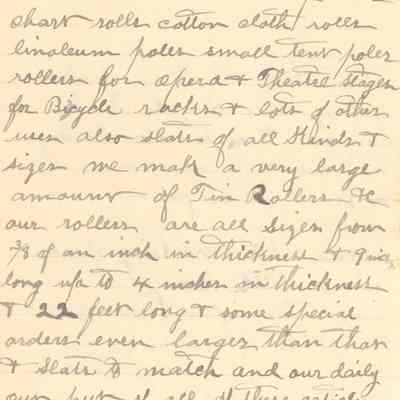 chart rolls cotton cloth rolls
linoleum poles small tent poles
rollers for opera & Theatre stages
for Bicycle racks & lots of other
uses also slats of all Kinds &
sizes we mak a very large
amount of Tin Rollers &c
our rollers are all sizes from
3/8 of an inch in thickness & 9 in
long up to 4 inches in thickness
& 22 feet long & some special
orders even larger than that
& slats to match and our daily
out put of all of these